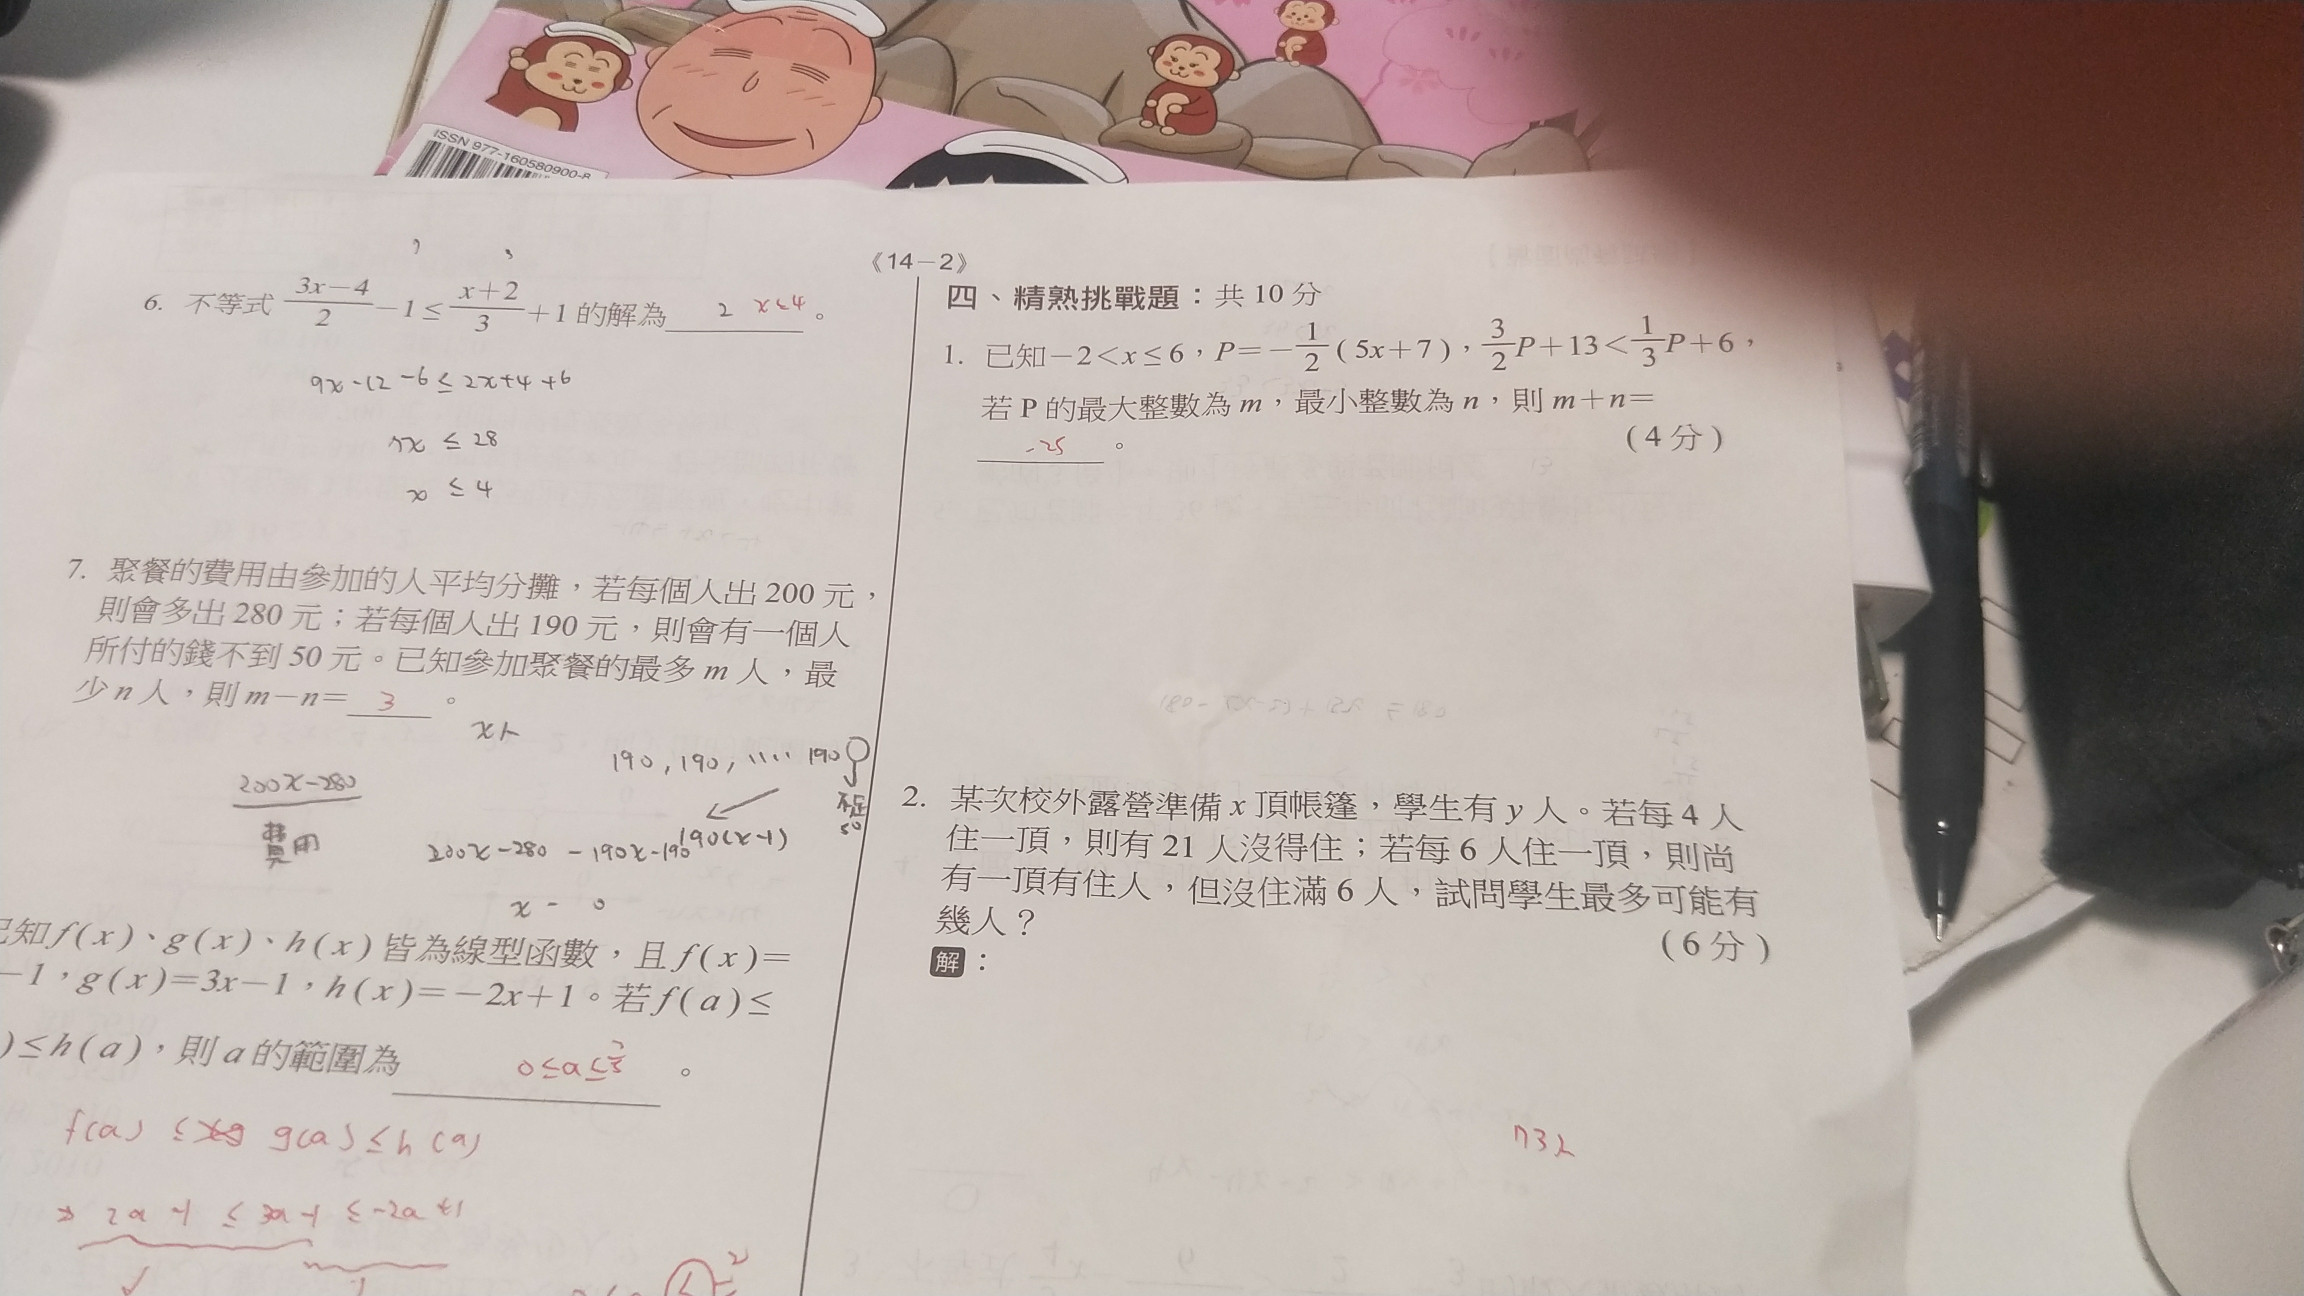 ISSN 977-160580900-8
《14－2》
6. 不等式 \frac{3x-4}{2}-1≤\frac{x+2}{3}+1 的解為 2 x≤4 。
9x-12-6≤2x+4+6
7x ≤ 28
x ≤ 4
7. 聚餐的費用由參加的人平均分攤，若每個人出 200 元，
則會多出 280 元；若每個人出 190 元，則會有一個人
所付的錢不到 50 元。已知參加聚餐的最多 m 人，最
少 n 人，則 m－n= 3 。
x人
190, 190, .... 190
不足
50
200x-280
費用
190(x-1)
200x-280 - 190x-190
x - 0
已知 f(x)、g(x)、h(x) 皆為線型函數，且 f(x)=
-1，g(x)=3x-1，h(x)=-2x+1。若 f(a)≤
)≤h(a)，則 a 的範圍為 0≤a≤\frac{2}{5} 。
f(a) ≤ g(a) ≤ h(a)
2a-1 ≤ 3a-1 ≤ -2a+1
四、精熟挑戰題：共 10 分
1. 已知－2<x≤6，P=－\frac{1}{2}(5x+7)，\frac{3}{2}P+13<\frac{1}{3}P+6，
若 P 的最大整數為 m，最小整數為 n，則 m＋n=
-25 。
(4 分)
2. 某次校外露營準備 x 頂帳篷，學生有 y 人。若每 4 人
住一頂，則有 21 人沒得住；若每 6 人住一頂，則尚
有一頂有住人，但沒住滿 6 人，試問學生最多可能有
幾人？
(6 分)
解：
73人